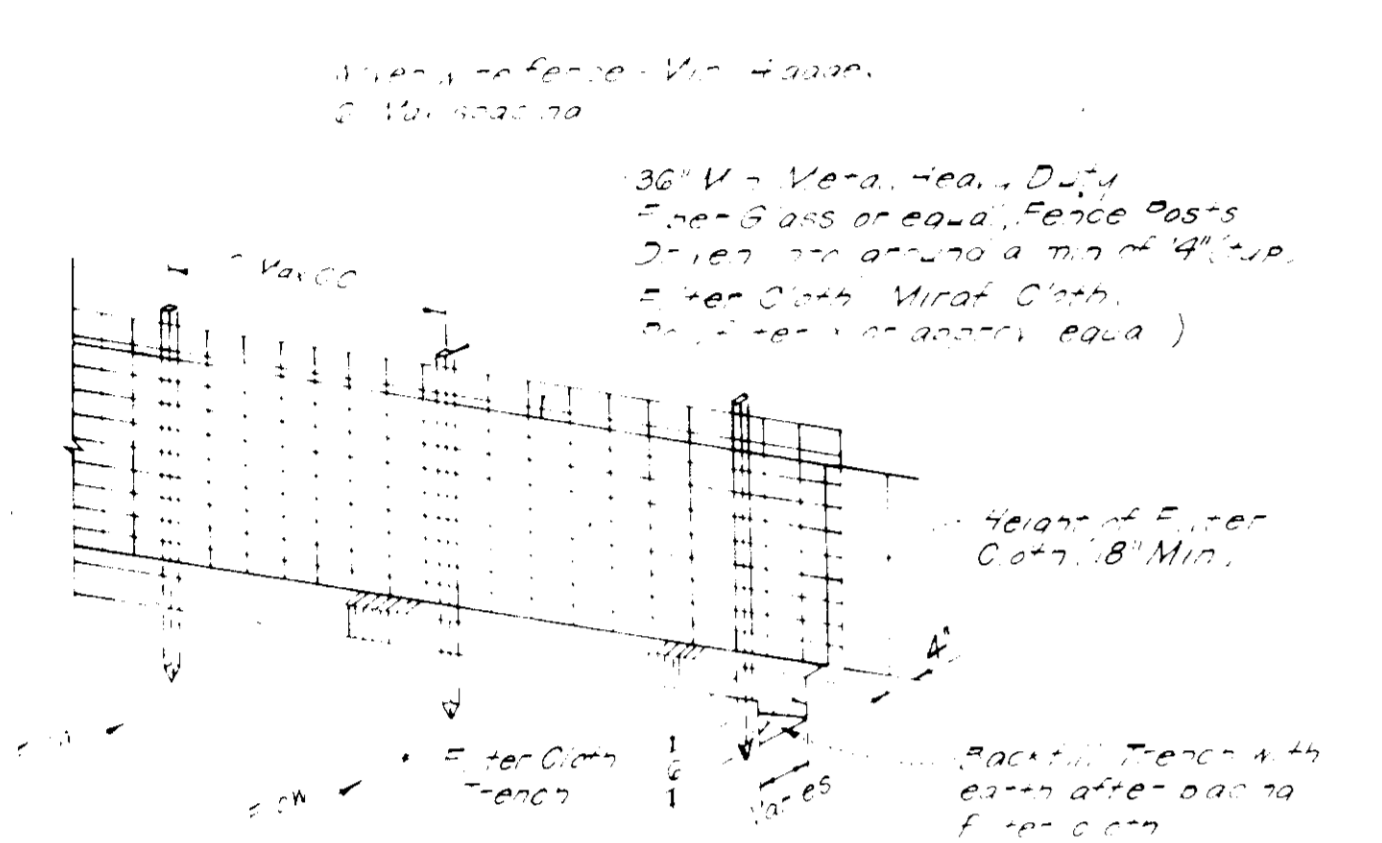 Woven wire fence - Min. 14 gage.
6" Max spacing
36" Min Metal, Heavy Duty
Fiber Glass or equal, Fence Posts
Driven into ground a min of 14" (typ.
Filter Cloth Mirafi Cloth,
or approx equal)
Max CC
Height of Filter
Cloth, 18" Min.
4"
Flow
Filter Cloth
Trench
6
Flow
Varies
Backfill Trench with
earth after placing
filter cloth